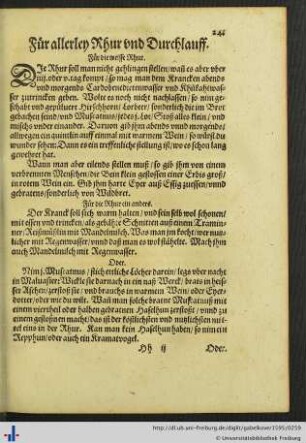 241
Für allerley Rhur vnd Durchlauff.
Für die weisse Rhur.
DIe Rhur soll man nicht gehlingen stellen/ was es aber vber
oder v. tag kompt/ so mag man dem Krancken abends
vnd morgends Cardobenedictenwasser vnd
ser zutrincken geben. Wolte es noch nicht nachlassen/ so nim ge-
schabt vnd gepüluert Hirschhorn/ Lorbeer/ sonderlich die im Brot
gebachen seind/ vnd Muscatnuss/ jedes j. Lot/ Stoß alles klein/ vnd
mischs vnder einander. Daruon gib jhm abends vnnd morgends/
allwegen ein quintlin auff einmal mit warmem Wein/ so würst du
wunder sehen: Dann es ein treffenliche stellung ist/ wo es schon lang
gewehret hat.
Wann man aber eilends stellen muß/ so gib jhm von einem
verbrennten Menschen/ die Bein klein gestossen einer Erbis groß/
in rotem Wein ein. Gib jhm harte Eyer auß Essig zuessen/ vnnd
gebratens/ sonderlich von Wildbret.
Für die Rhur ein anders.
Der Kranck soll sich warm halten/ vnd sein selb wol schonen/
mit essen vnd trincken/ als gebähte Schnitten auß einem Tramin-
ner: Reißmüßlin mit Mandelmilch. Was man jm kocht/ wer nutz-
licher mit Regenwasser/ vnnd daß man es wol stählete. Mach jhm
auch Mandelmilch mit Regenwasser.
Oder.
Nim j. Muscatnuß/ stich etliche Löcher darein/ legs vber nacht
in Maluasier: Wickle sie darnach in ein naß Werck/ brats in heis-
ser Aschen/ zerstoß sie/ vnd brauchs in warmem Wein/ oder Eyer-
dotter/ oder wie du wilt. Wañ man solche bratne Muscatnuß mit
einem viertheil oder halben gebratnen Haselhun zerstoßt/ vnnd zu
einem gestoßnen macht/ das ist der köstlichsten vnd nutzlichsten mit-
tel eins in der Rhur. Kan man kein Haselhun haben/ so nim ein
Repphun/ oder auch ein Kramatvogel.
Hh ij
Oder.
http://dl.ub.uni-freiburg.de/diglit/gabelkover1595/0259
© Universitätsbibliothek Freiburg